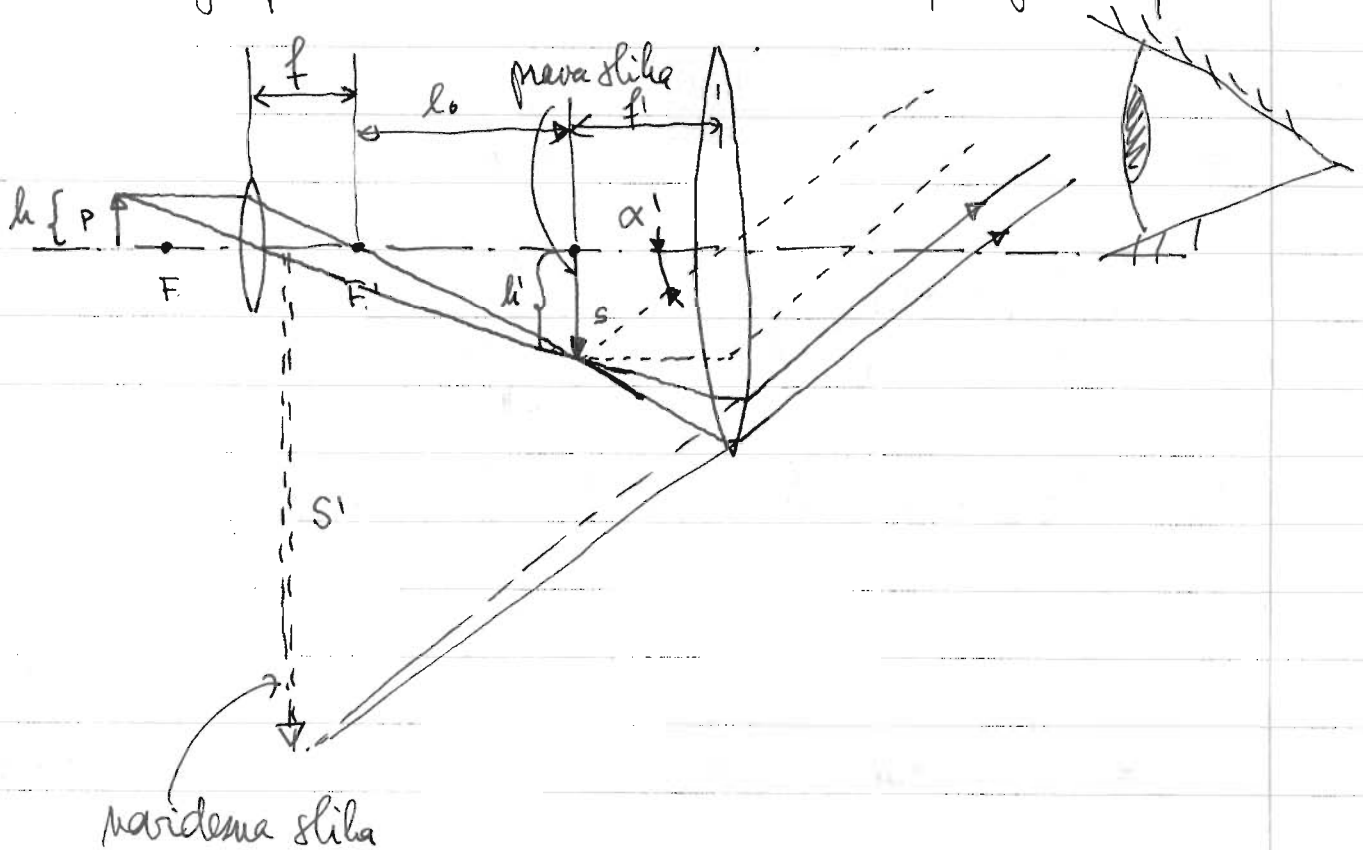 f
prava slika
l₀
f'
h { P
α'
F
F'
h' {
s
S'
navidezna slika